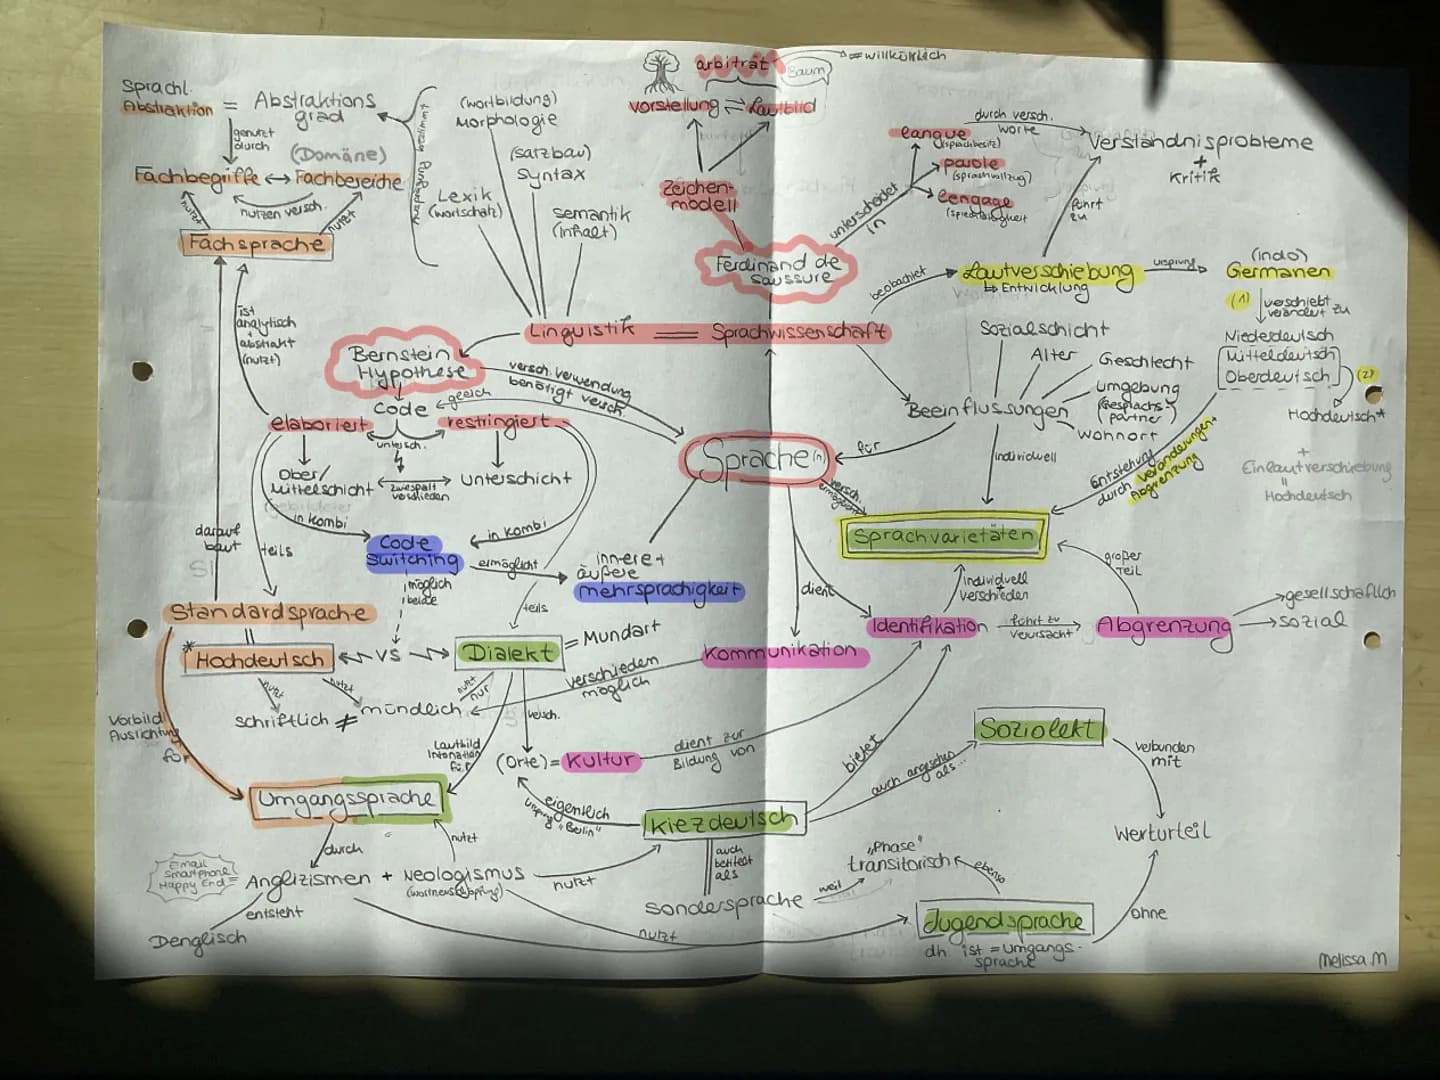 Sprachl.
Abstraktion = Abstraktions
grad
genutzt
durch
(Domäne)
Fachbegriffe ↔ Fachbereiche
nutzen versch.
nutzt
nutzt
Fachsprache
(wortbildung)
Morphologie
(satzbau)
Syntax
Lexik
(wortschatz)
semantik
(inhalt)
arbiträt
= willkürlich
Baum
Vorstellung ⇌ Lautbild
Zeichen-
modell
Ferdinand de
Saussure
unterscheidet
in
langue
(sprachbesitz)
parole
(sprachvollzug)
lengage
durch versch.
worte
Verständnisprobleme
+
Kritik
führt
zu
beobachtet
Lautverschiebung
↳ Entwicklung
ursprung
(indo)
Germanen
(1)
verschiebt
verändert zu
Niederdeutsch
Mitteldeutsch
Oberdeutsch
(2)
Hochdeutsch*
+
Einlautverschiebung
=
Hochdeutsch
ist
analytisch
+
abstrakt
(nutzt)
Linguistik = Sprachwissenschaft
Bernstein
Hypothese
versch. verwendung
benötigt versch.
Code
elaboriert
restringiert
untersch.
Ober/
Mittelschicht
zwiespalt
verschieden
Unterschicht
in Kombi
in Kombi
Code
switching
ermöglicht
möglich
beide
innere +
äußere
mehrsprachigkeit
Sprache(n)
für
versch.
Sozialschicht
Alter
Geschlecht
umgebung
(Gesprächs-
partner)
wohnort
Beeinflussungen
individuell
Entstehung
durch Veränderungen+
Abgrenzung
Sprachvarietäten
großer
Teil
individuell
verschieden
dient
Identifikation
führt zu
verursacht
Abgrenzung
gesellschaftlich
sozial
darauf
baut
teils
teils
Standardsprache
=
* Hochdeutsch
VS
Dialekt
= Mundart
Kommunikation
verschieden
möglich
nutzt
nutzt
nutzt
nur
schriftlich ≠ mündlich
versch.
Vorbild/
Ausrichtung
für
Lautbild
Intonation
für
(Orte) = Kultur
dient zur
Bildung von
bietet
Umgangssprache
eigentlich
ursprung "Berlin"
Kiezdeutsch
auch angesehen
als...
Soziolekt
verbunden
mit
Werturteil
durch
nutzt
Email
Smartphone
Happy End =
Anglizismen + Neologismus
nutzt
auch
betitelt
als
sondersprache
weil
„Phase"
transitorisch
ebenso
entsteht
Denglisch
nutzt
Jugendsprache
dh ist = umgangs-
sprache
ohne
Melissa.M